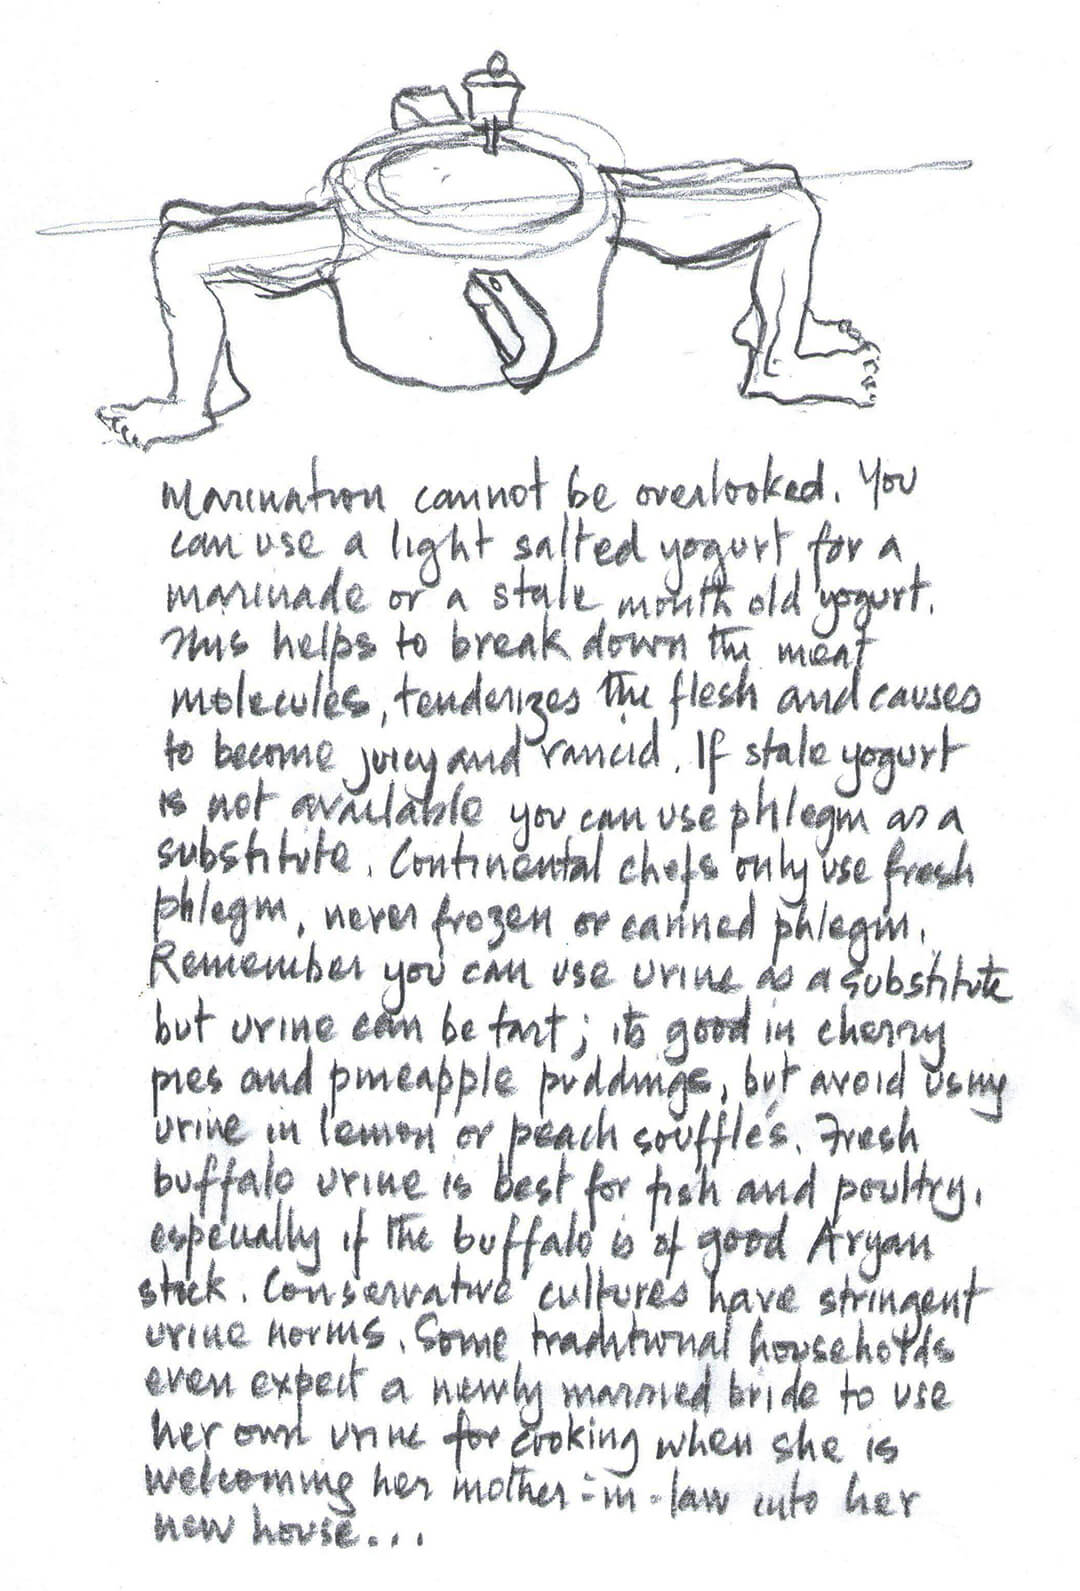 Marination cannot be overlooked. You
can use a light salted yogurt for a
marinade or a stale month old yogurt.
This helps to break down the meat
molecules, tenderizes the flesh and causes
to become juicy and rancid. If stale yogurt
is not available you can use phlegm as a
substitute. Continental chefs only use fresh
phlegm, never frozen or canned phlegm.
Remember you can use urine as a substitute
but urine can be tart; its good in cherry
pies and pineapple puddings, but avoid using
urine in lemon or peach soufflés. Fresh
buffalo urine is best for fish and poultry,
especially if the buffalo is of good Aryan
stock. Conservative cultures have stringent
urine norms. Some traditional households
even expect a newly married bride to use
her own urine for cooking when she is
welcoming her mother-in-law into her
new house...